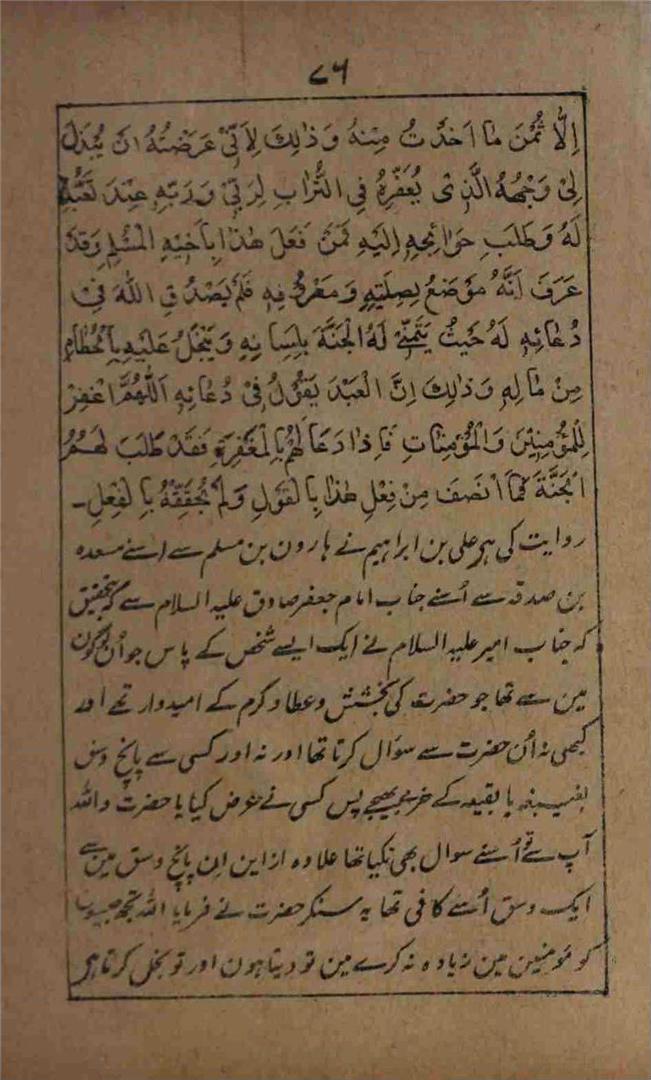 ۷۶
اِلَّا ثَمَنَ مَا اَخَذْتُ مِنْهُ وَذٰلِكَ لِاَنِّیْ عَرَضْتُهُ اَنْ يُبْذَلَ
لِیْ وَجْهُهُ الَّذِیْ يُعَفِّرُهُ فِی التُّرَابِ لِرَبِّیْ وَرَبِّهٖ عِنْدَ تَعَبُّدِهٖ
لَهُ وَطَلَبِ حَوَائِجِهٖ اِلَيْهِ فَمَنْ فَعَلَ هٰذَا بِاَخِيْهِ الْمُسْلِمِ وَقَدْ
عَرَفَ اِنَّهُ مَوْضَعٌ لِصِلَتِهٖ وَمَعْرُوْفِهٖ فَلَمْ يَصْدُقِ اللّٰهَ فِیْ
دُعَائِهٖ لَهُ حَيْثُ يَتَمَنّٰی لَهُ الْجَنَّةَ بِلِسَانِهٖ وَيَبْخَلُ عَلَيْهِ بِالْحُطَامِ
مِنْ مَالِهٖ وَذٰلِكَ اِنَّ الْعَبْدَ يَقُوْلُ فِیْ دُعَائِهٖ اَللّٰهُمَّ اغْفِرْ
لِلْمُؤْمِنِيْنَ وَالْمُؤْمِنَاتِ فَاِذَا دَعَا لَهُمْ بِالْمَغْفِرَةِ فَقَدْ طَلَبَ لَهُمُ
الْجَنَّةَ فَمَا اَنْصَفَ مِنْ فِعْلِ هٰذَا بِالْقَوْلِ وَلَمْ يُحَقِّقْهُ بِالْفِعْلِ۔
روایت کی ہی علی بن ابراہیم نے ہارون بن مسلم سے اسنے مسعدہ
بن صدقہ سے اُسنے جناب امام جعفر صادق علیہ السلام سے کہ بتحقیق
کہ جناب امیر علیہ السلام نے ایک ایسے شخص کے پاس جو اُن لوگون
مین سے تھا جو حضرت کی بخشش و عطا و کرم کے امیدوار تھے اور
کبھی نہ اُن حضرت سے سوال کرتا تھا اور نہ اور کسی سے پانچ وسق
بغیبغہ یا بقیعہ کے خرمے بھیجے پس کسی نے عرض کیا یا حضرت واللہ
آپ سے تو اُسنے سوال بھی نکیا تھا علاوہ ازاین اِن پانچ وسق مین سے
ایک وسق اُسے کافی تھا یہ سنکر حضرت نے فرمایا اللہ تجھ
کو مومنین مین زیادہ نہ کرے مین تو دیتا ہون اور تو بخل کرتا ہی